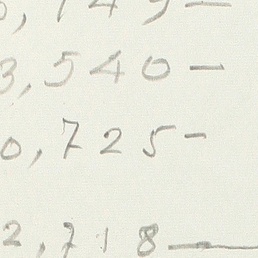 3,540 —
0,725 -
2,718 —